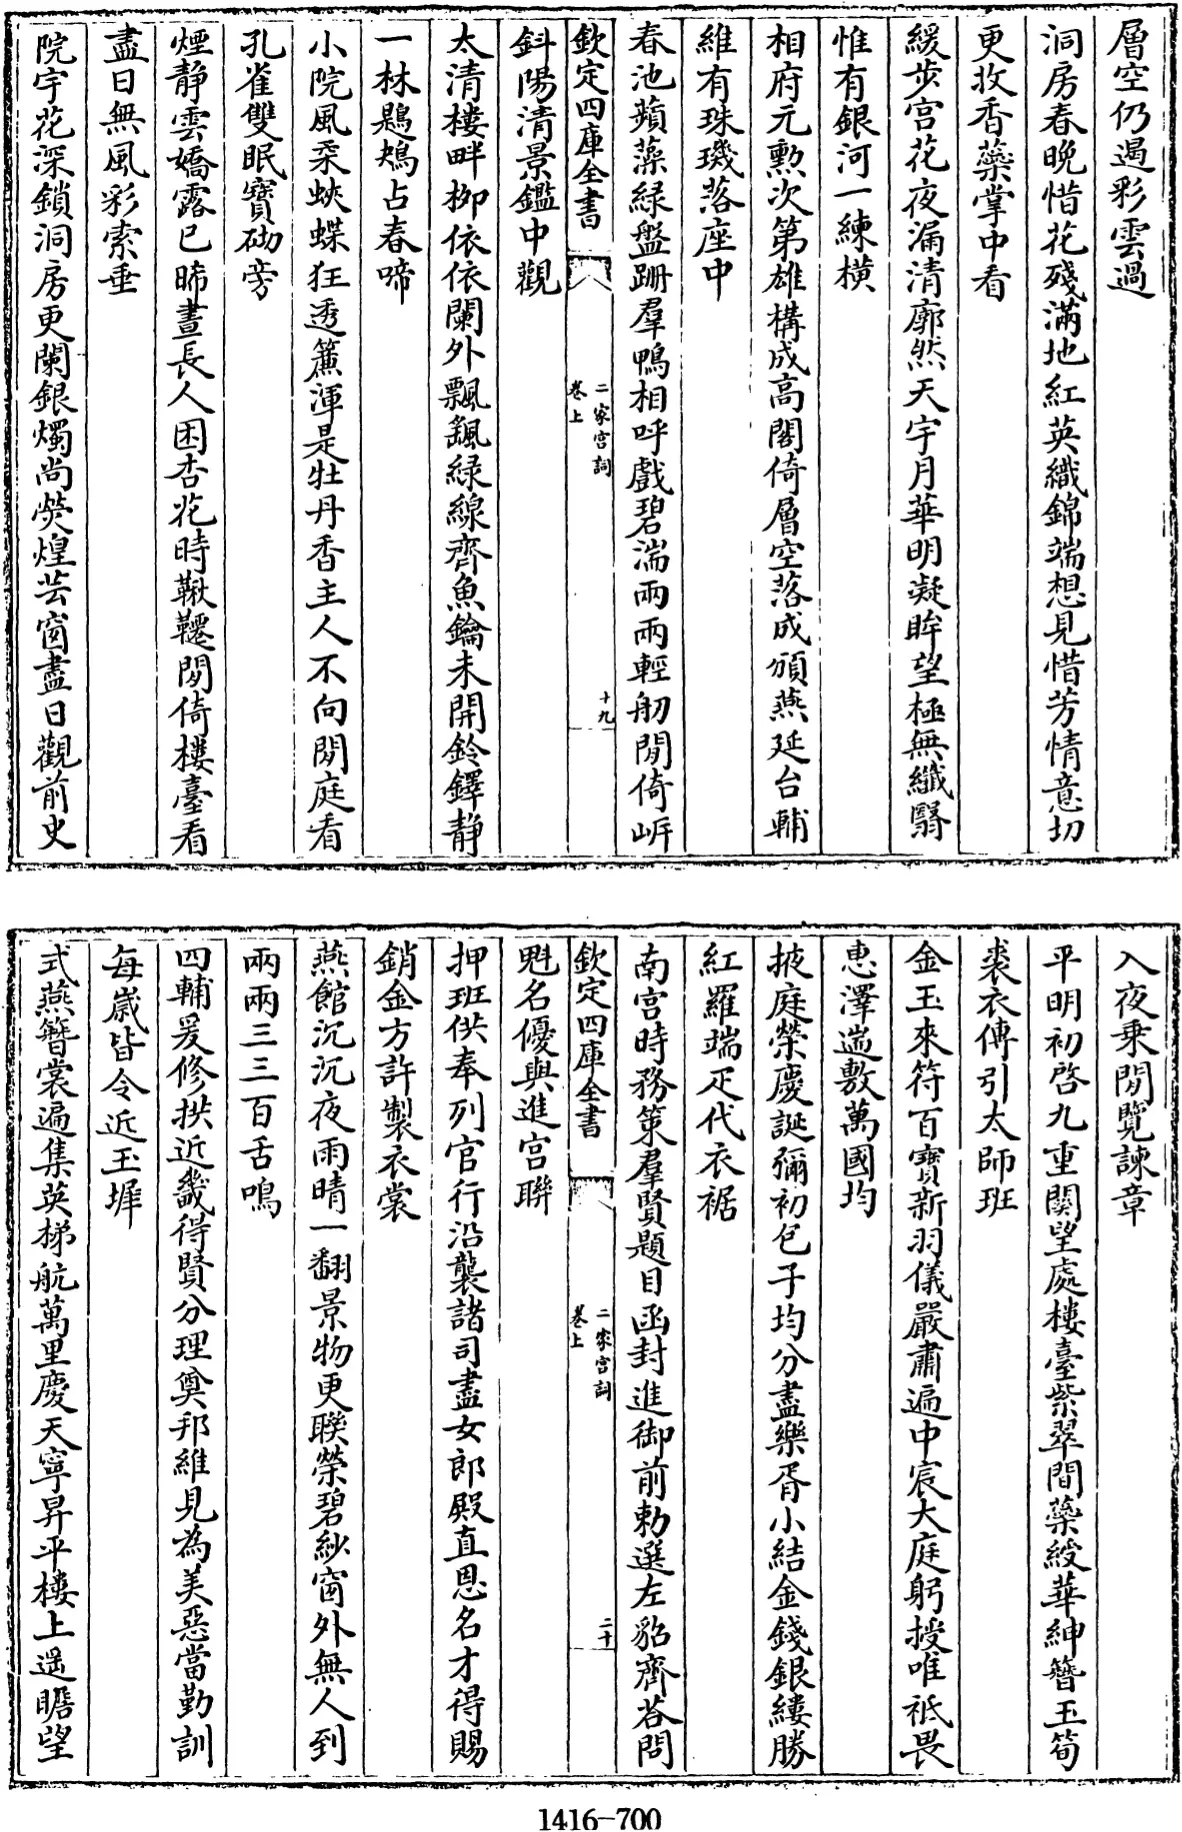 層空仍遏彩雲過
洞房春晚惜花殘滿地紅英織錦端想見惜芳情意切
更收香蘂掌中看
緩步宫花夜漏清廓然天宇月華明凝眸望極無纖翳
惟有銀河一練橫
相府元勲次第雄構成高閣倚層空落成頒燕延台輔
維有珠璣落座中
春池蘋藻緑盤跚羣鴨相呼戲碧湍兩兩輕舠閒倚岍
欽定四庫全書
二家宫詞
卷上
十九
斜陽清景鑑中觀
太清樓畔柳依依闌外飄颻緑線齊魚鑰未開鈴鐸静
一林鶗鴂占春啼
小院風柔蛺蝶狂透簾渾是牡丹香主人不向閒庭看
孔雀雙眠寶砌旁
煙靜雲嬌露已晞晝長人困杏花時鞦韆閒倚樓臺看
盡日無風彩索垂
院宇花深鎖洞房更闌銀燭尚熒煌芸窗盡日觀前史
入夜乗閒覽諫章
平明初啓九重關望處樓臺紫翠間蘂綬華紳簪玉筍
裘衣傳引太師班
金玉來符百寶新羽儀嚴肅遍中宸大庭躬授唯祗畏
惠澤遄敷萬國均
掖庭榮慶誕彌初包子均分盡樂胥小結金錢銀縷勝
紅羅端疋代衣裾
南宫時務策羣賢題目函封進御前勅選左貂齊荅問
欽定四庫全書
二家宫詞
卷上
二十
魁名優與進宫聨
押班供奉列官行沿襲諸司盡女郎殿直恩名才得賜
銷金方許製衣裳
燕館沉沉夜雨晴一翻景物更聨榮碧紗窗外無人到
兩兩三三百舌鳴
四輔爰修拱近畿得賢分理奠邦維見為美惡當勤訓
每嵗皆令近玉墀
式燕簪裳遍集英梯航萬里慶天寧昇平樓上遥瞻望
1416-700